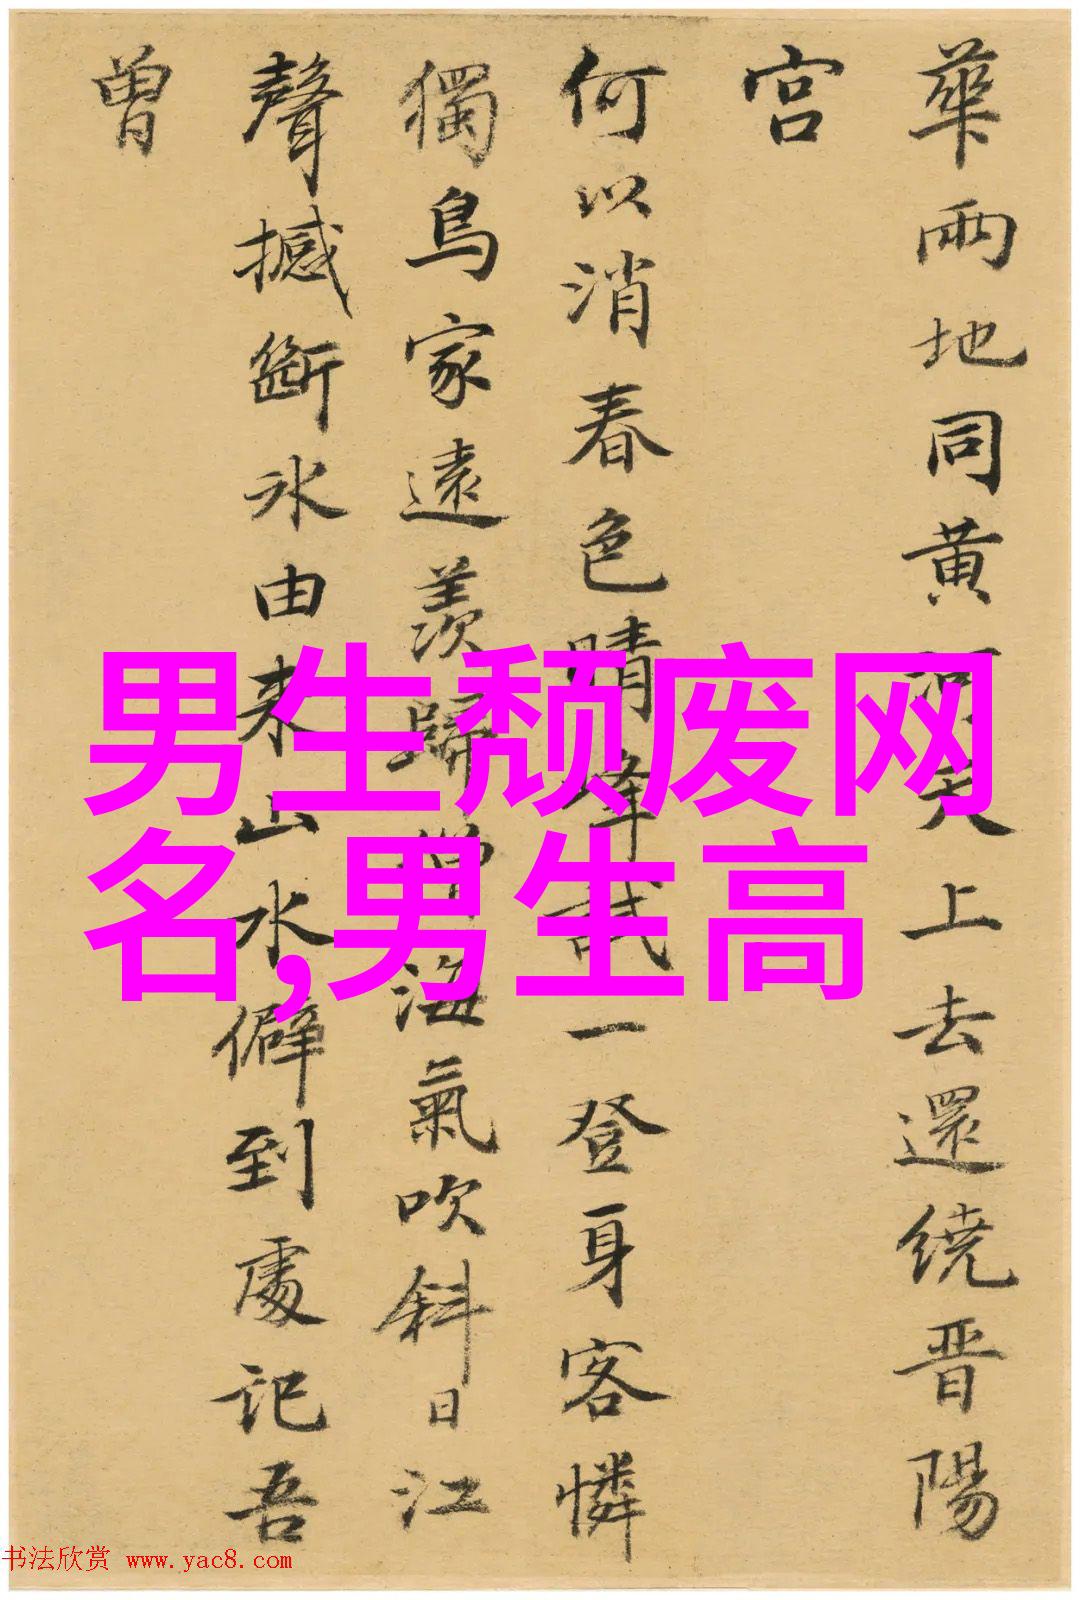 華兩地同黄河天上去還繞晋陽
宫
何以消春色晴峰試一登身客憐
獨鳥家遠羨歸僧海氣吹斜日江
聲撼斷冰由来山水僻到處記吾
曾
男生颓废网
名,男生高
书法欣赏 www.yac8.com